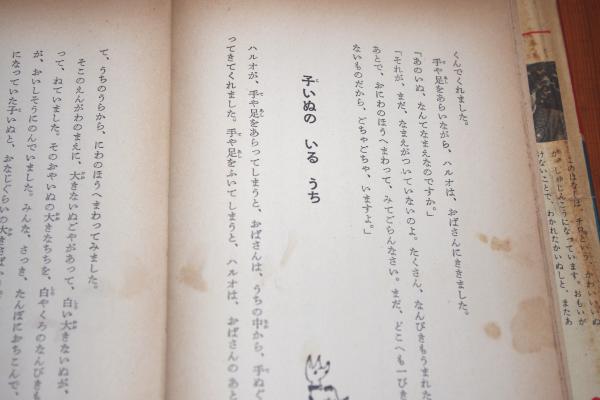 このはなしは、チロという、かわいいいぬ
が、しゅじんこうになっています。おもいが
けないことで、わかれたかいぬしと、またあ
くんでくれました。
手や足をあらいながら、ハルオは、おばさんにききました。
「あのいぬ、なんてなまえなのですか。」
「それが、まだ、なまえがついていないのよ。たくさん、なんびきもうまれた
あとで、おにわのほうへまわって、みてごらんなさい。まだ、どこへも一ぴき
ないものだから、ごちゃごちゃ、いますよ。」
子いぬの いる うち
ハルオが、手や足をあらってしまうと、おばさんは、うちの中から、手ぬぐ
ってきてくれました。手や足をふいてしまうと、ハルオは、おばさんのあと
て、うちのうらから、にわのほうへまわってみました。
そこのえんがわのまえに、大きないぬごやがあって、白い大きないぬが、
って、ねていました。そのおやいぬの大きなちちを、白やくろのなんびきも
が、おいしそうにのんでいました。みんな、さっき、たんぼにおちこんで、
になっていた子いぬと、おなじぐらいの大きさ